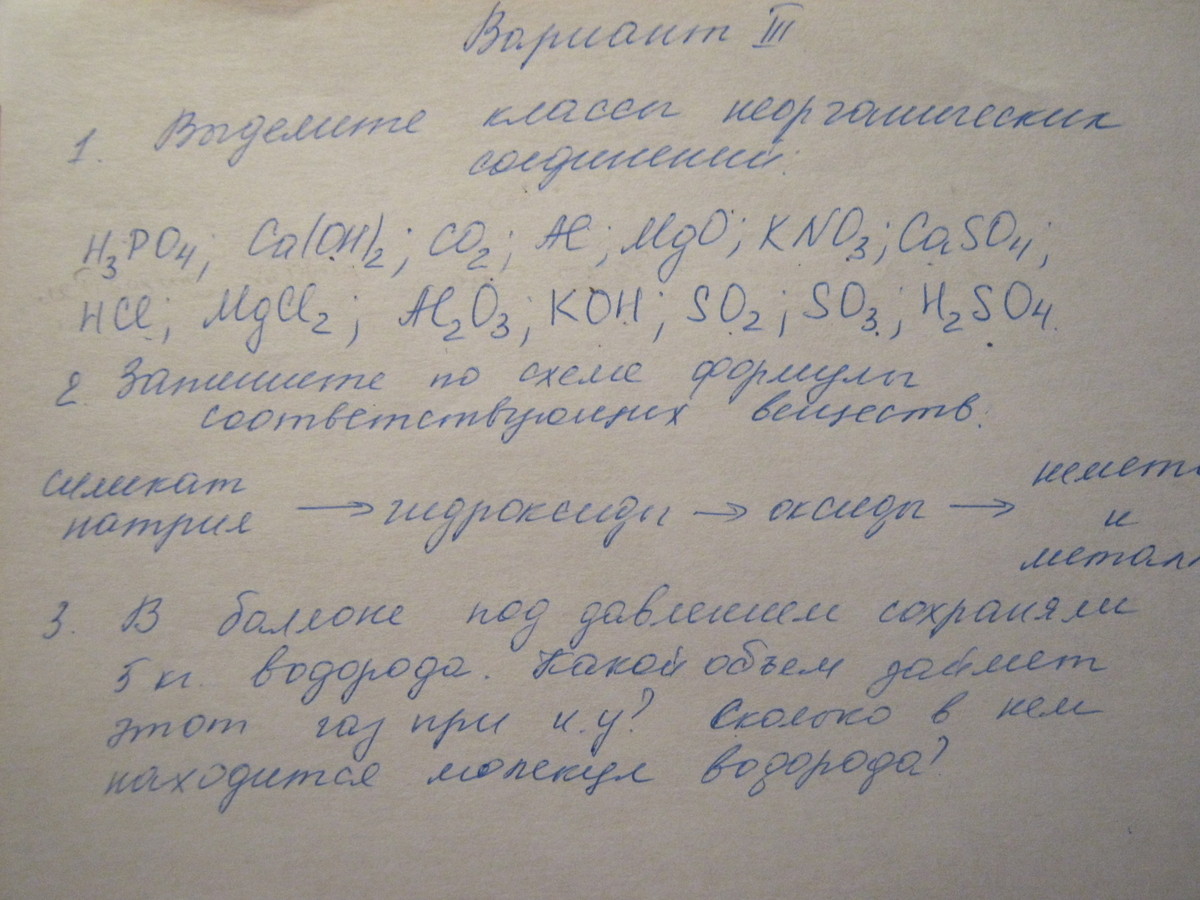 Вариант III
1. Выделите классы неорганических
соединений:
H₃PO₄; Ca(OH)₂; CO₂; Al; MgO; KNO₃; CaSO₄;
HCl; MgCl₂; Al₂O₃; KOH; SO₂; SO₃; H₂SO₄.
2. Запишите по схеме формулы
соответствующих веществ:
силикат натрия → гидроксиды → оксиды → немета и метал
3. В баллоне под давлением сохраняли
5 кг. водорода. Какой объем займет
этот газ при н.у? Сколько в нем
находится молекул водорода?